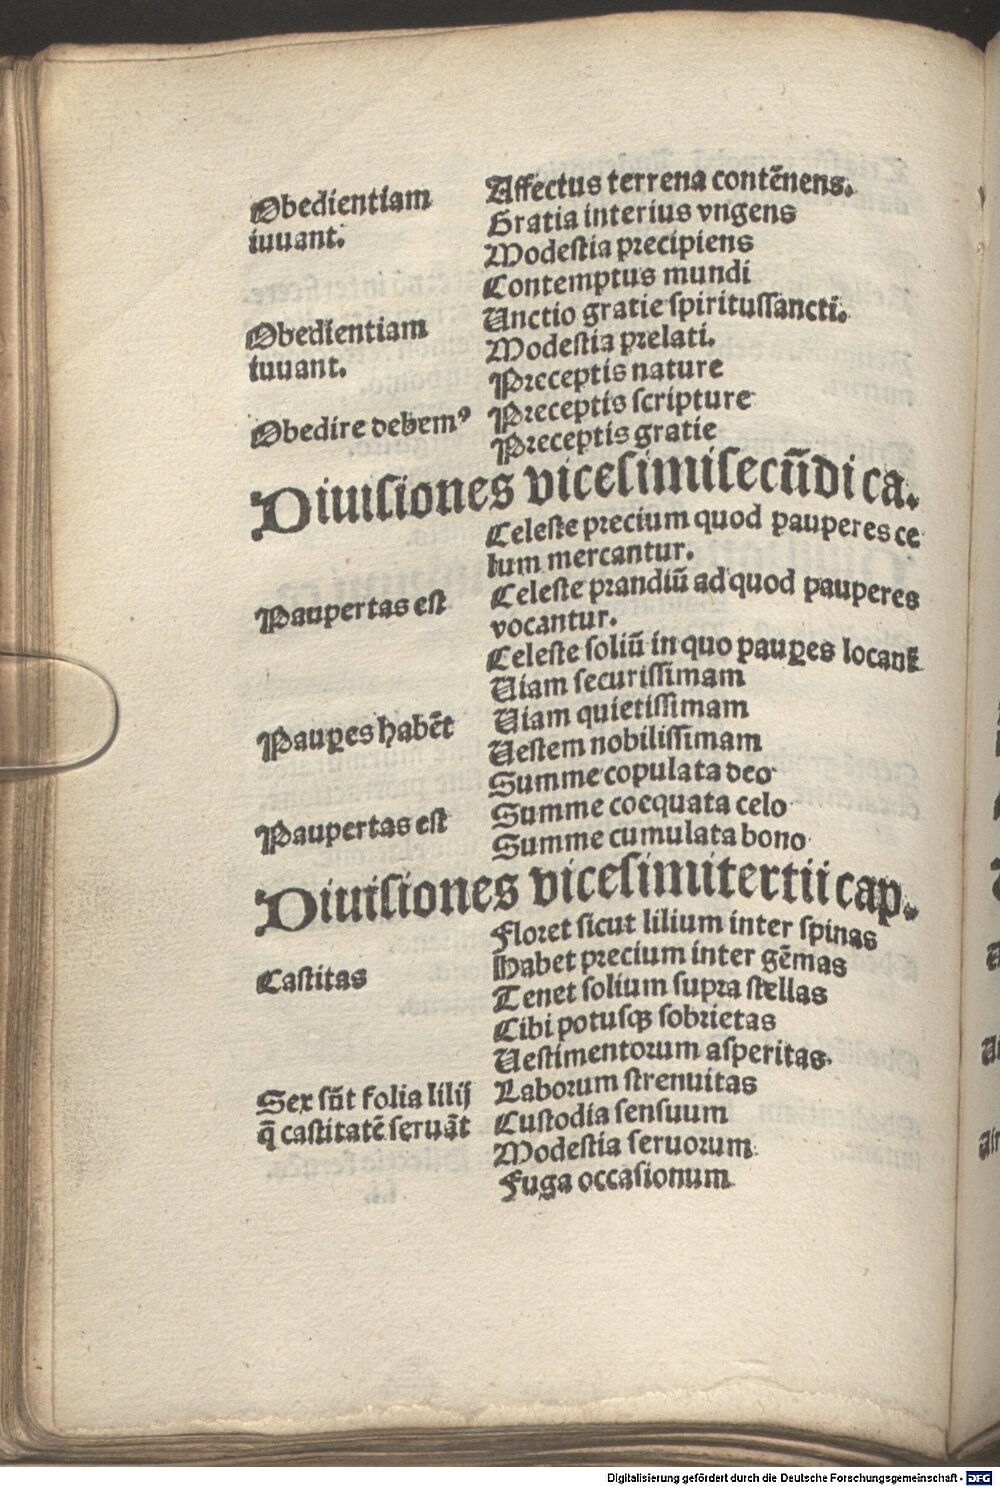 Obedientiam
iuuant.
Affectus terrena contēnens.
Gratia interius vngens
Modestia precipiens
Obedientiam
iuuant.
Contemptus mundi
Unctio gratie spiritussancti.
Modestia prelati.
Obedire debemꝰ
Preceptis nature
Preceptis scripture
Preceptis gratie
Diuisiones vicesimisecūdi ca.
Paupertas est
Celeste precium quod pauperes ce
lum mercantur.
Celeste prandiū ad quod pauperes
vocantur.
Celeste soliū in quo pauꝑes locant᷑
Pauꝑes habēt
Uiam securissimam
Uiam quietissimam
Uestem nobilissimam
Paupertas est
Summe copulata deo
Summe coequata celo
Summe cumulata bono
Diuisiones vicesimitertii cap.
Castitas
Floret sicut lilium inter spinas
Habet precium inter gēmas
Tenet solium supra stellas
Sex sūt folia lilij
q̄ castitatē seruāt
Cibi potusqꝫ sobrietas
Uestimentorum asperitas.
Laborum strenuitas
Custodia sensuum
Modestia seruorum
Fuga occasionum
Digitalisierung gefördert durch die Deutsche Forschungsgemeinschaft - DFG